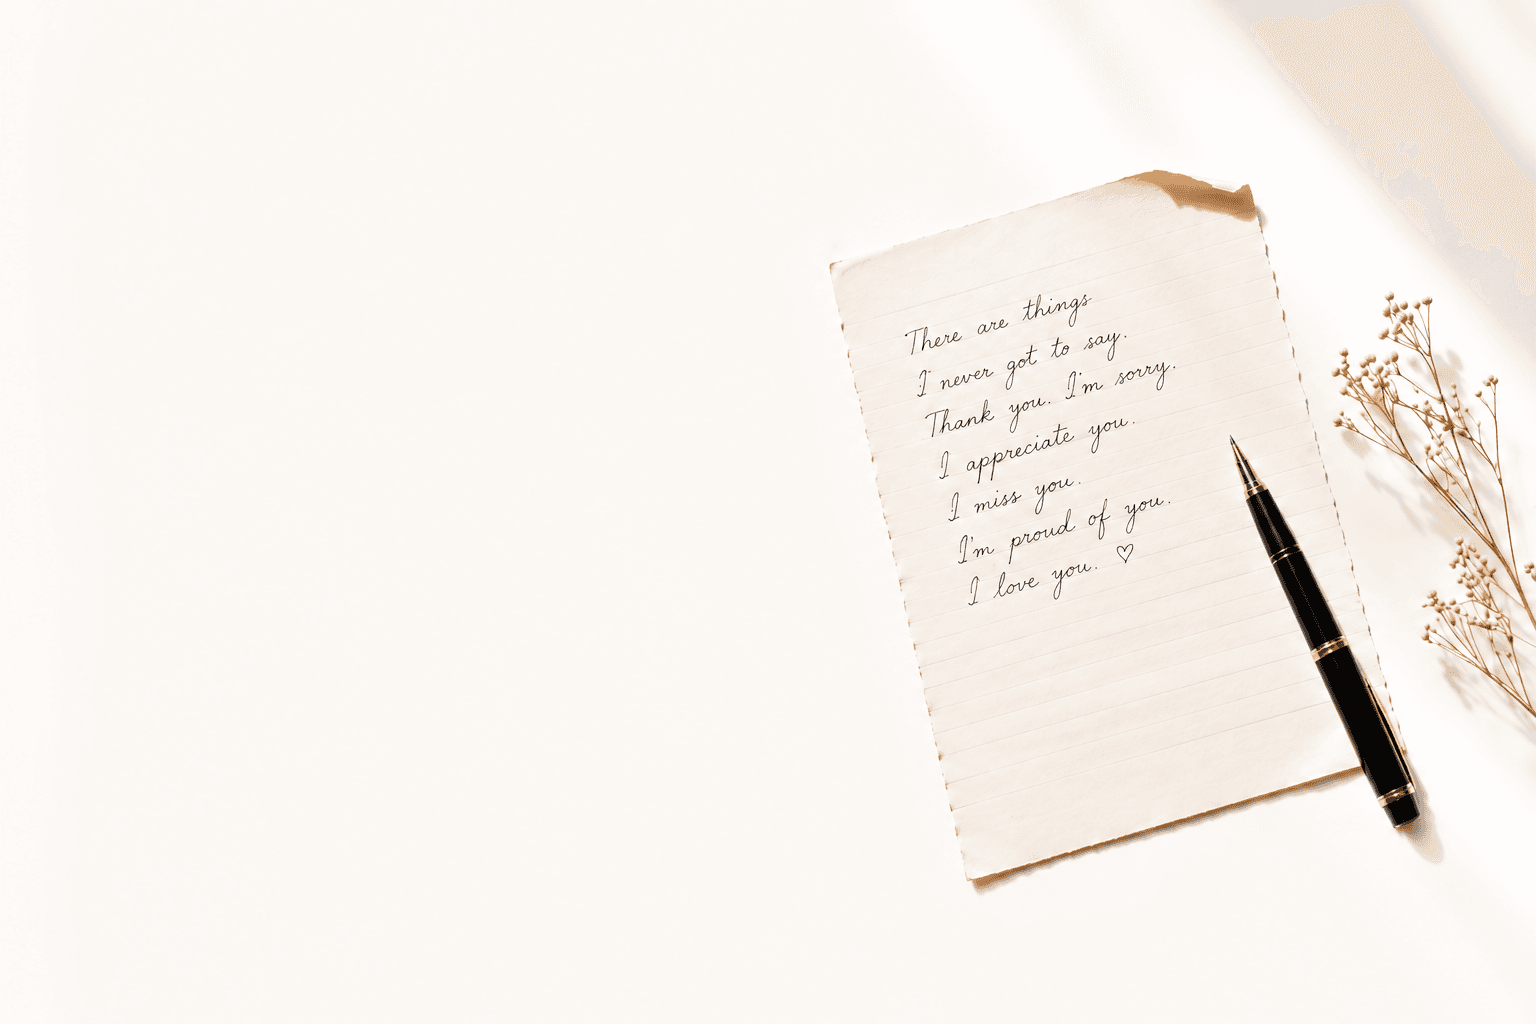 There are things
I never got to say.
Thank you. I'm sorry.
I appreciate you.
I miss you.
I'm proud of you.
I love you. ♡